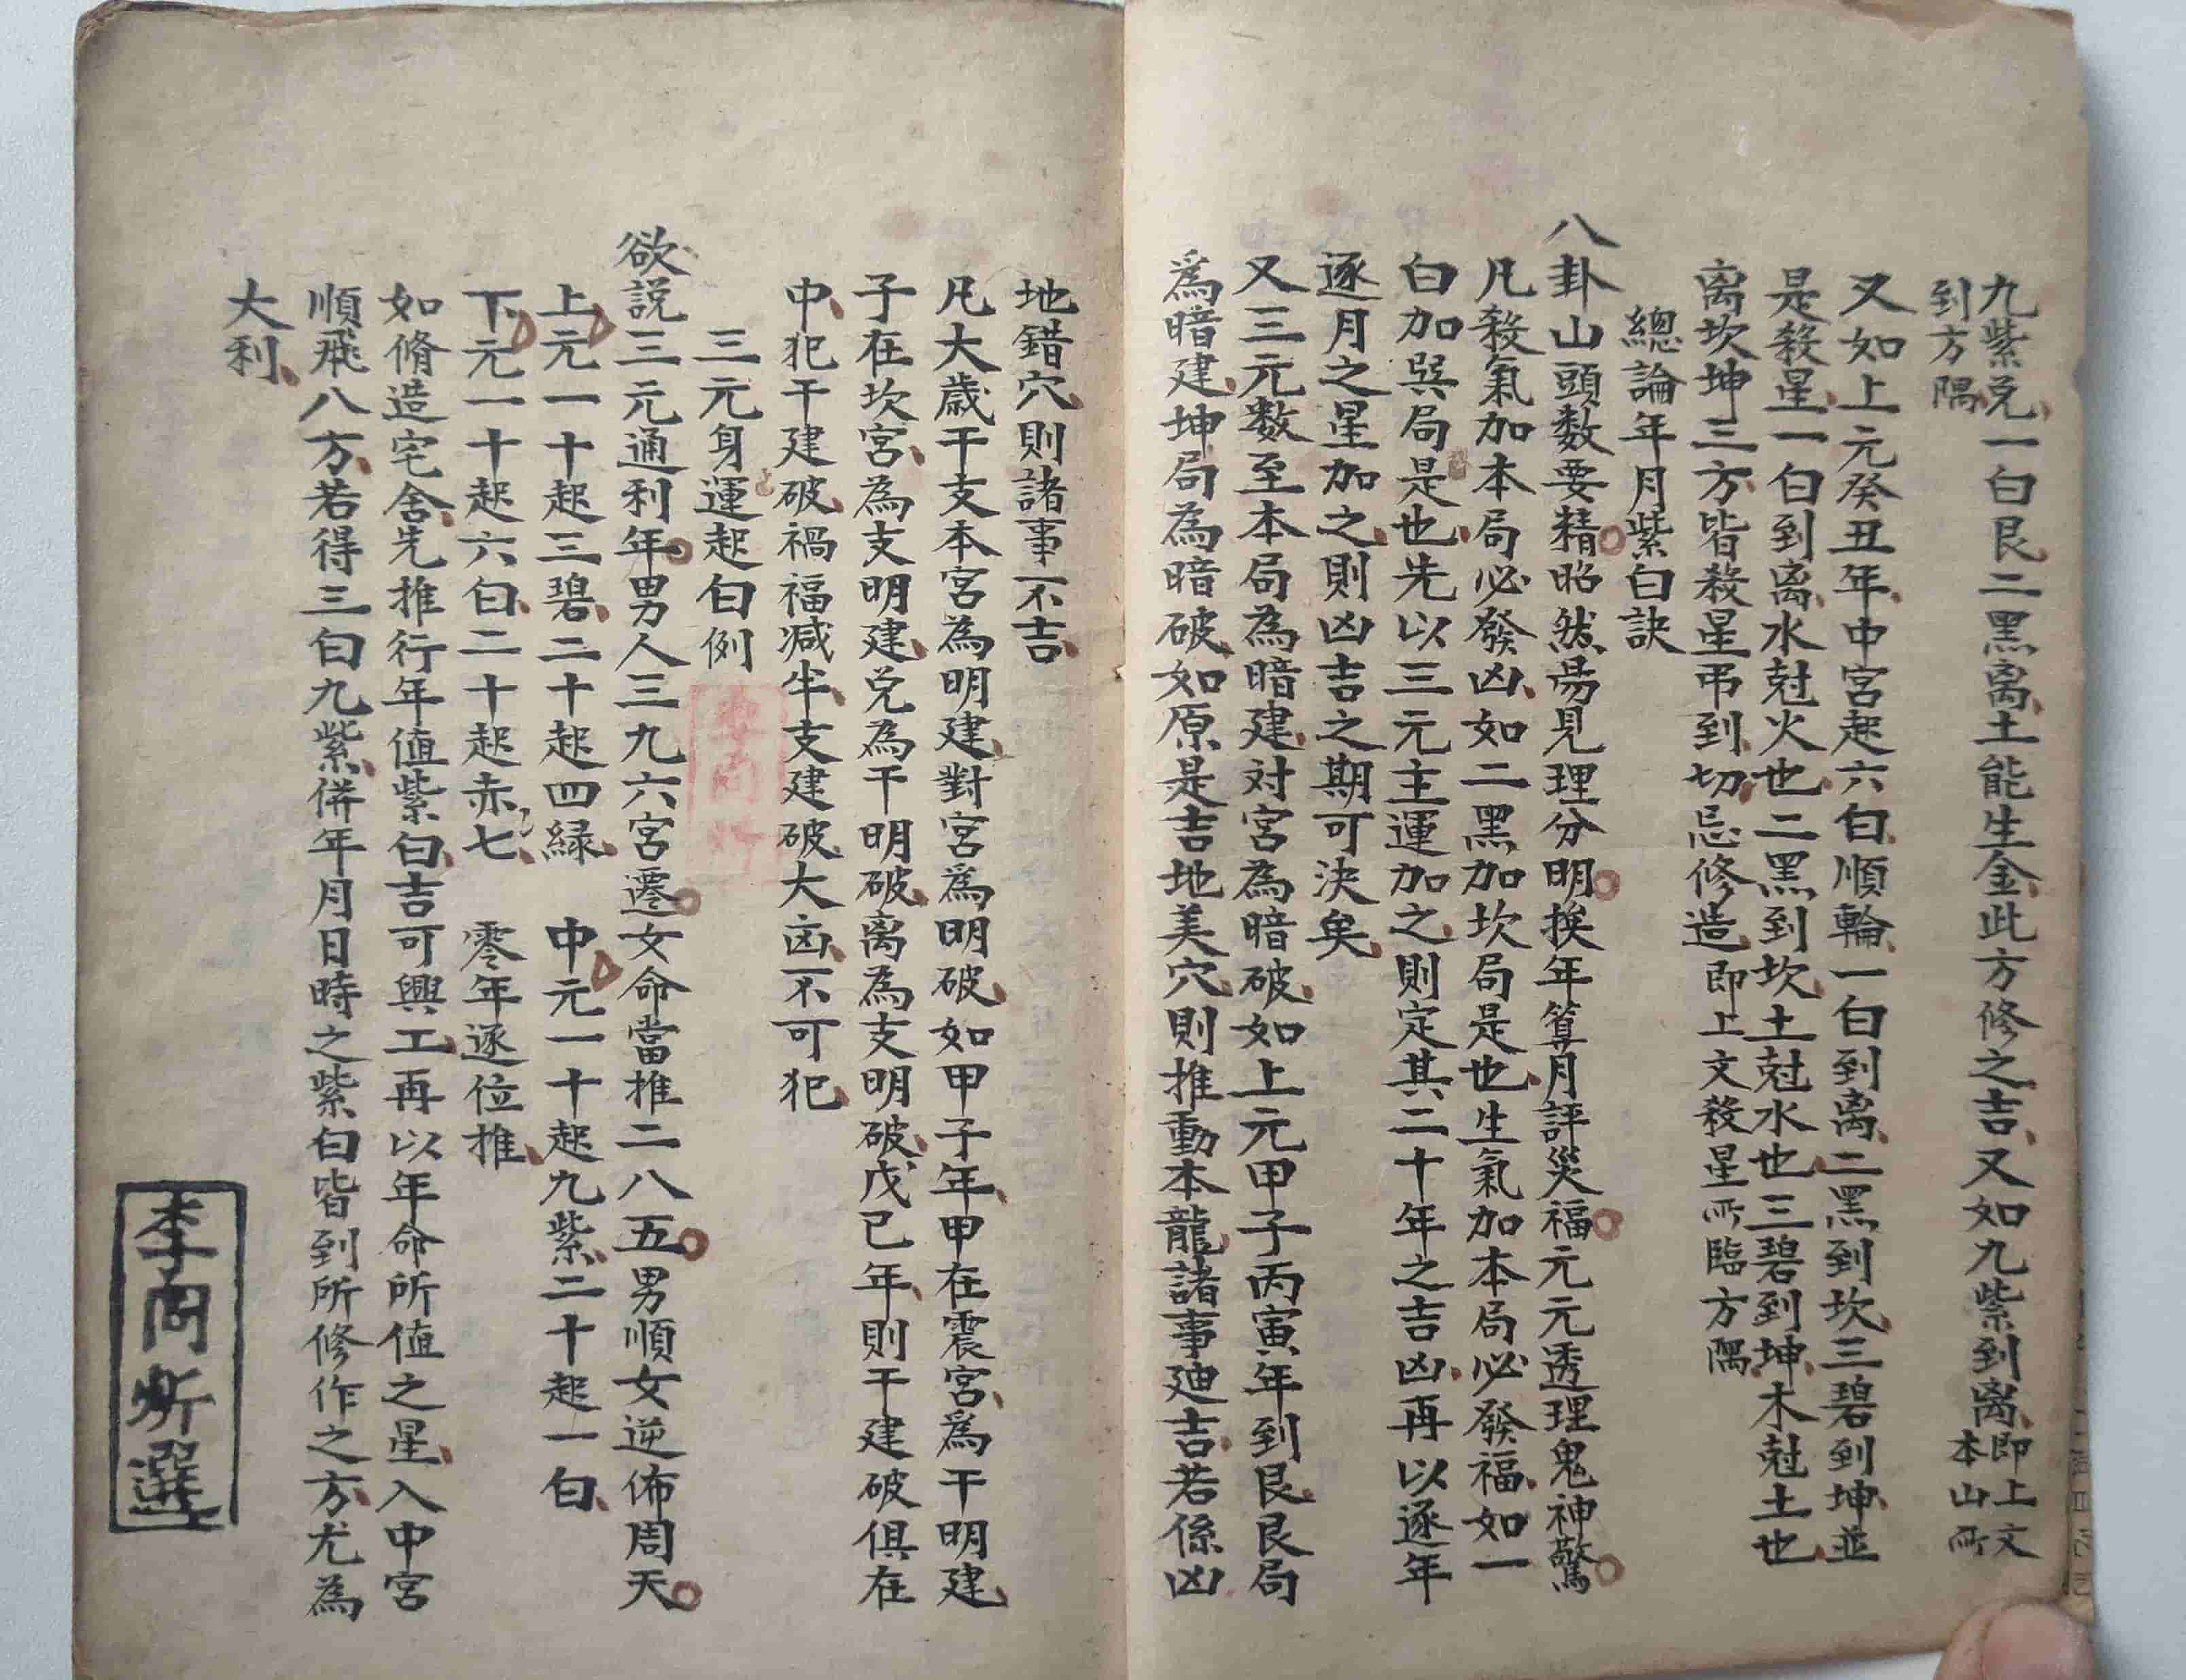 九紫兑一白艮二黑离土能生金此方修之吉又如九紫到离即上文本山所
到方隅
又如上元癸丑年中宮起六白順輪一白到离二黑到坎三碧到坤並
是殺星一白到离水尅火也二黑到坎土尅水也三碧到坤木尅土也
离坎坤三方皆殺星弔到切忌修造即上文殺星所臨方隅
總論年月紫白訣
八卦山頭数要精昭然昜見理分明挨年算月評災福元元透理鬼神驚
凡殺氣加本局必發凶如二黑加坎局是也生氣加本局必發福如一
白加巽局是也先以三元主運加之則定其二十年之吉凶再以逐年
逐月之星加之則凶吉之期可決矣
又三元数至本局為暗建対宮為暗破如上元甲子丙寅年到艮艮局
爲暗建坤局為暗破如原是吉地美穴則推動本龍諸事廸吉若係凶
地錯穴則諸事不吉
凡大歲干支本宮為明建對宮爲明破如甲子年甲在震宮爲干明建
子在坎宮為支明建兑為干明破离為支明破戊已年則干建破俱在
中犯干建破禍福减半支建破大凶不可犯
三元身運起白例
欲説三元通利年男人三九六宮遷女命當推二八五男順女逆佈周天
上元一十起三碧二十起四緑 中元一十起九紫二十起一白
下元一十起六白二十起赤七 零年逐位推
如脩造宅舍先推行年值紫白吉可興工再以年命所值之星入中宮
順飛八方若得三白九紫併年月日時之紫白皆到所修作之方尤為
大利
李尚
選